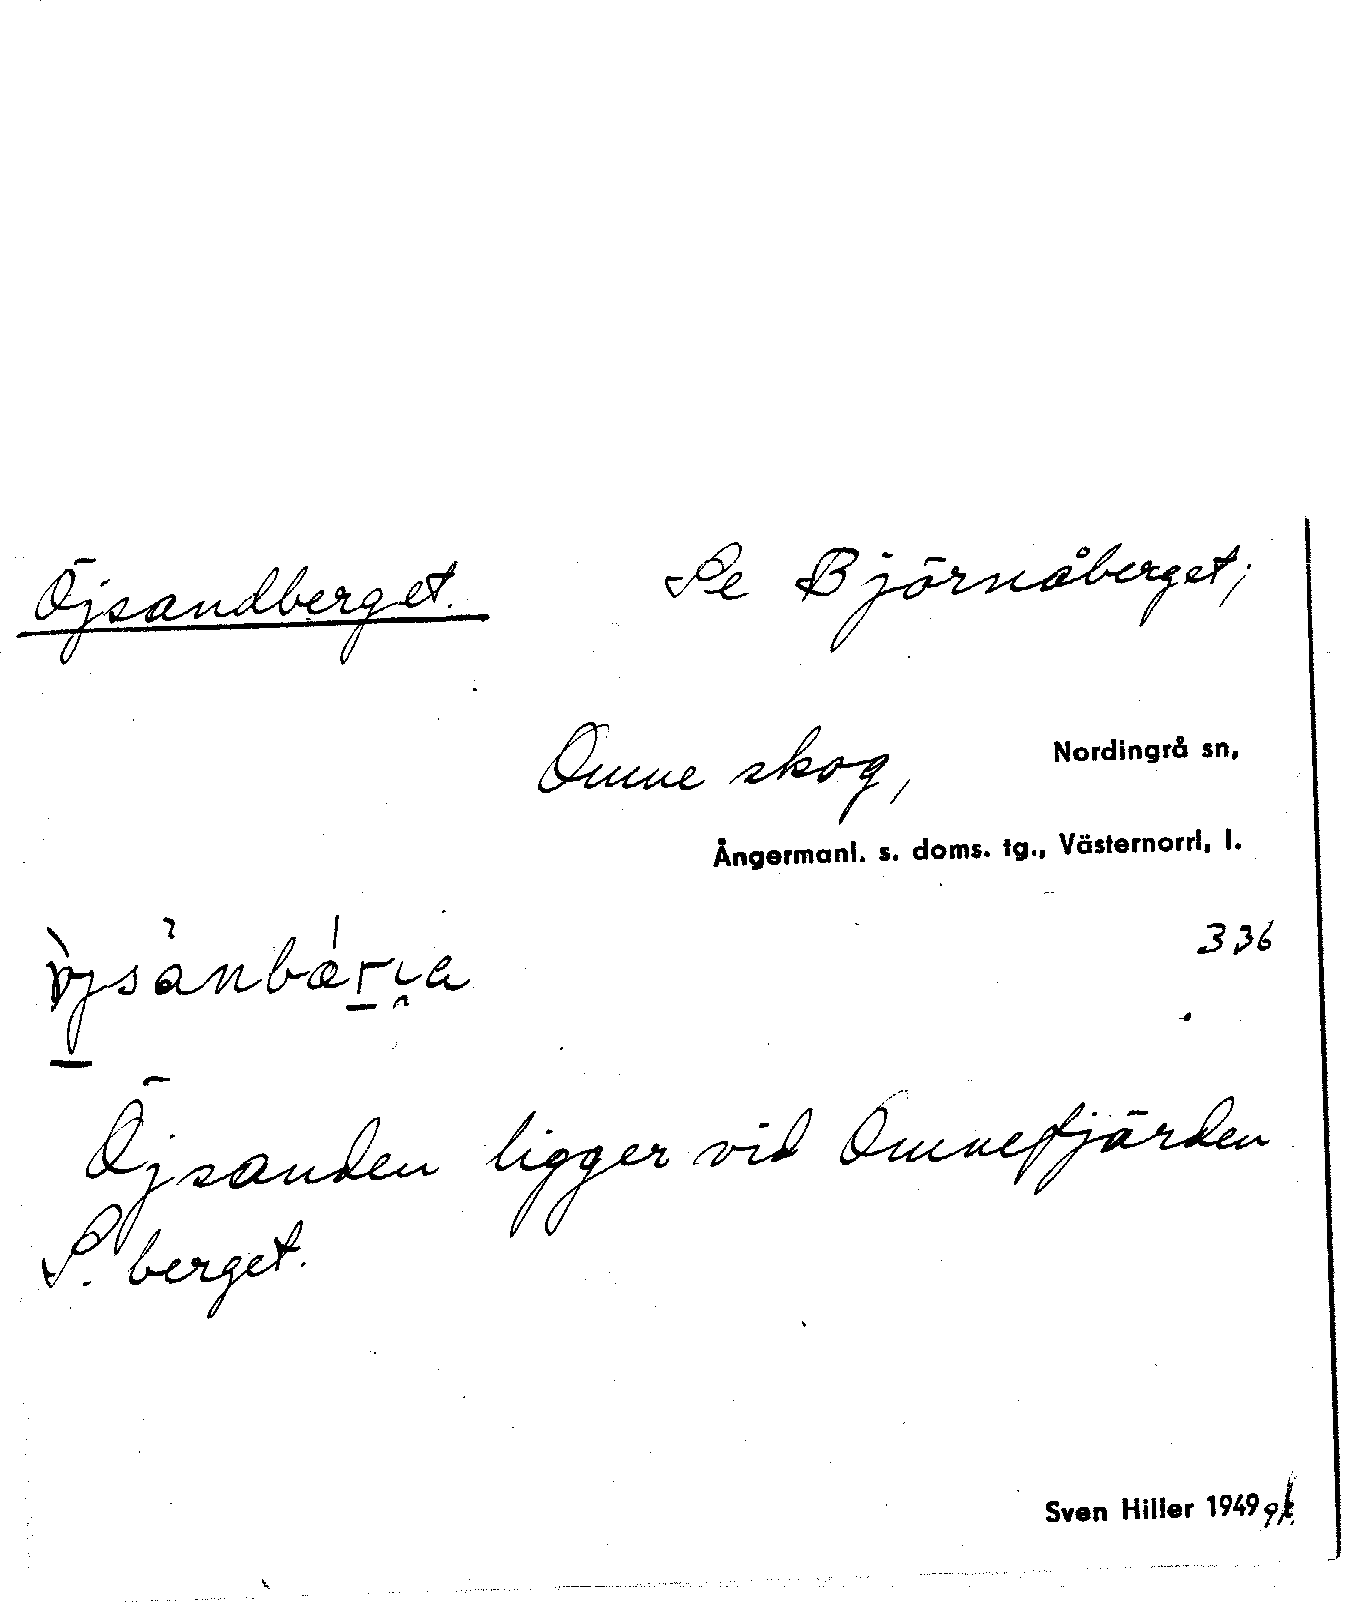 Öjsandberget. Se Björnåberget;
Omne skog, Nordingrå sn,
Ångermanl. s. doms. tg., Västernorrl, l.
336
Öjsanden ligger vid Omnefjärden
S. berget.
Sven Hiller 1949